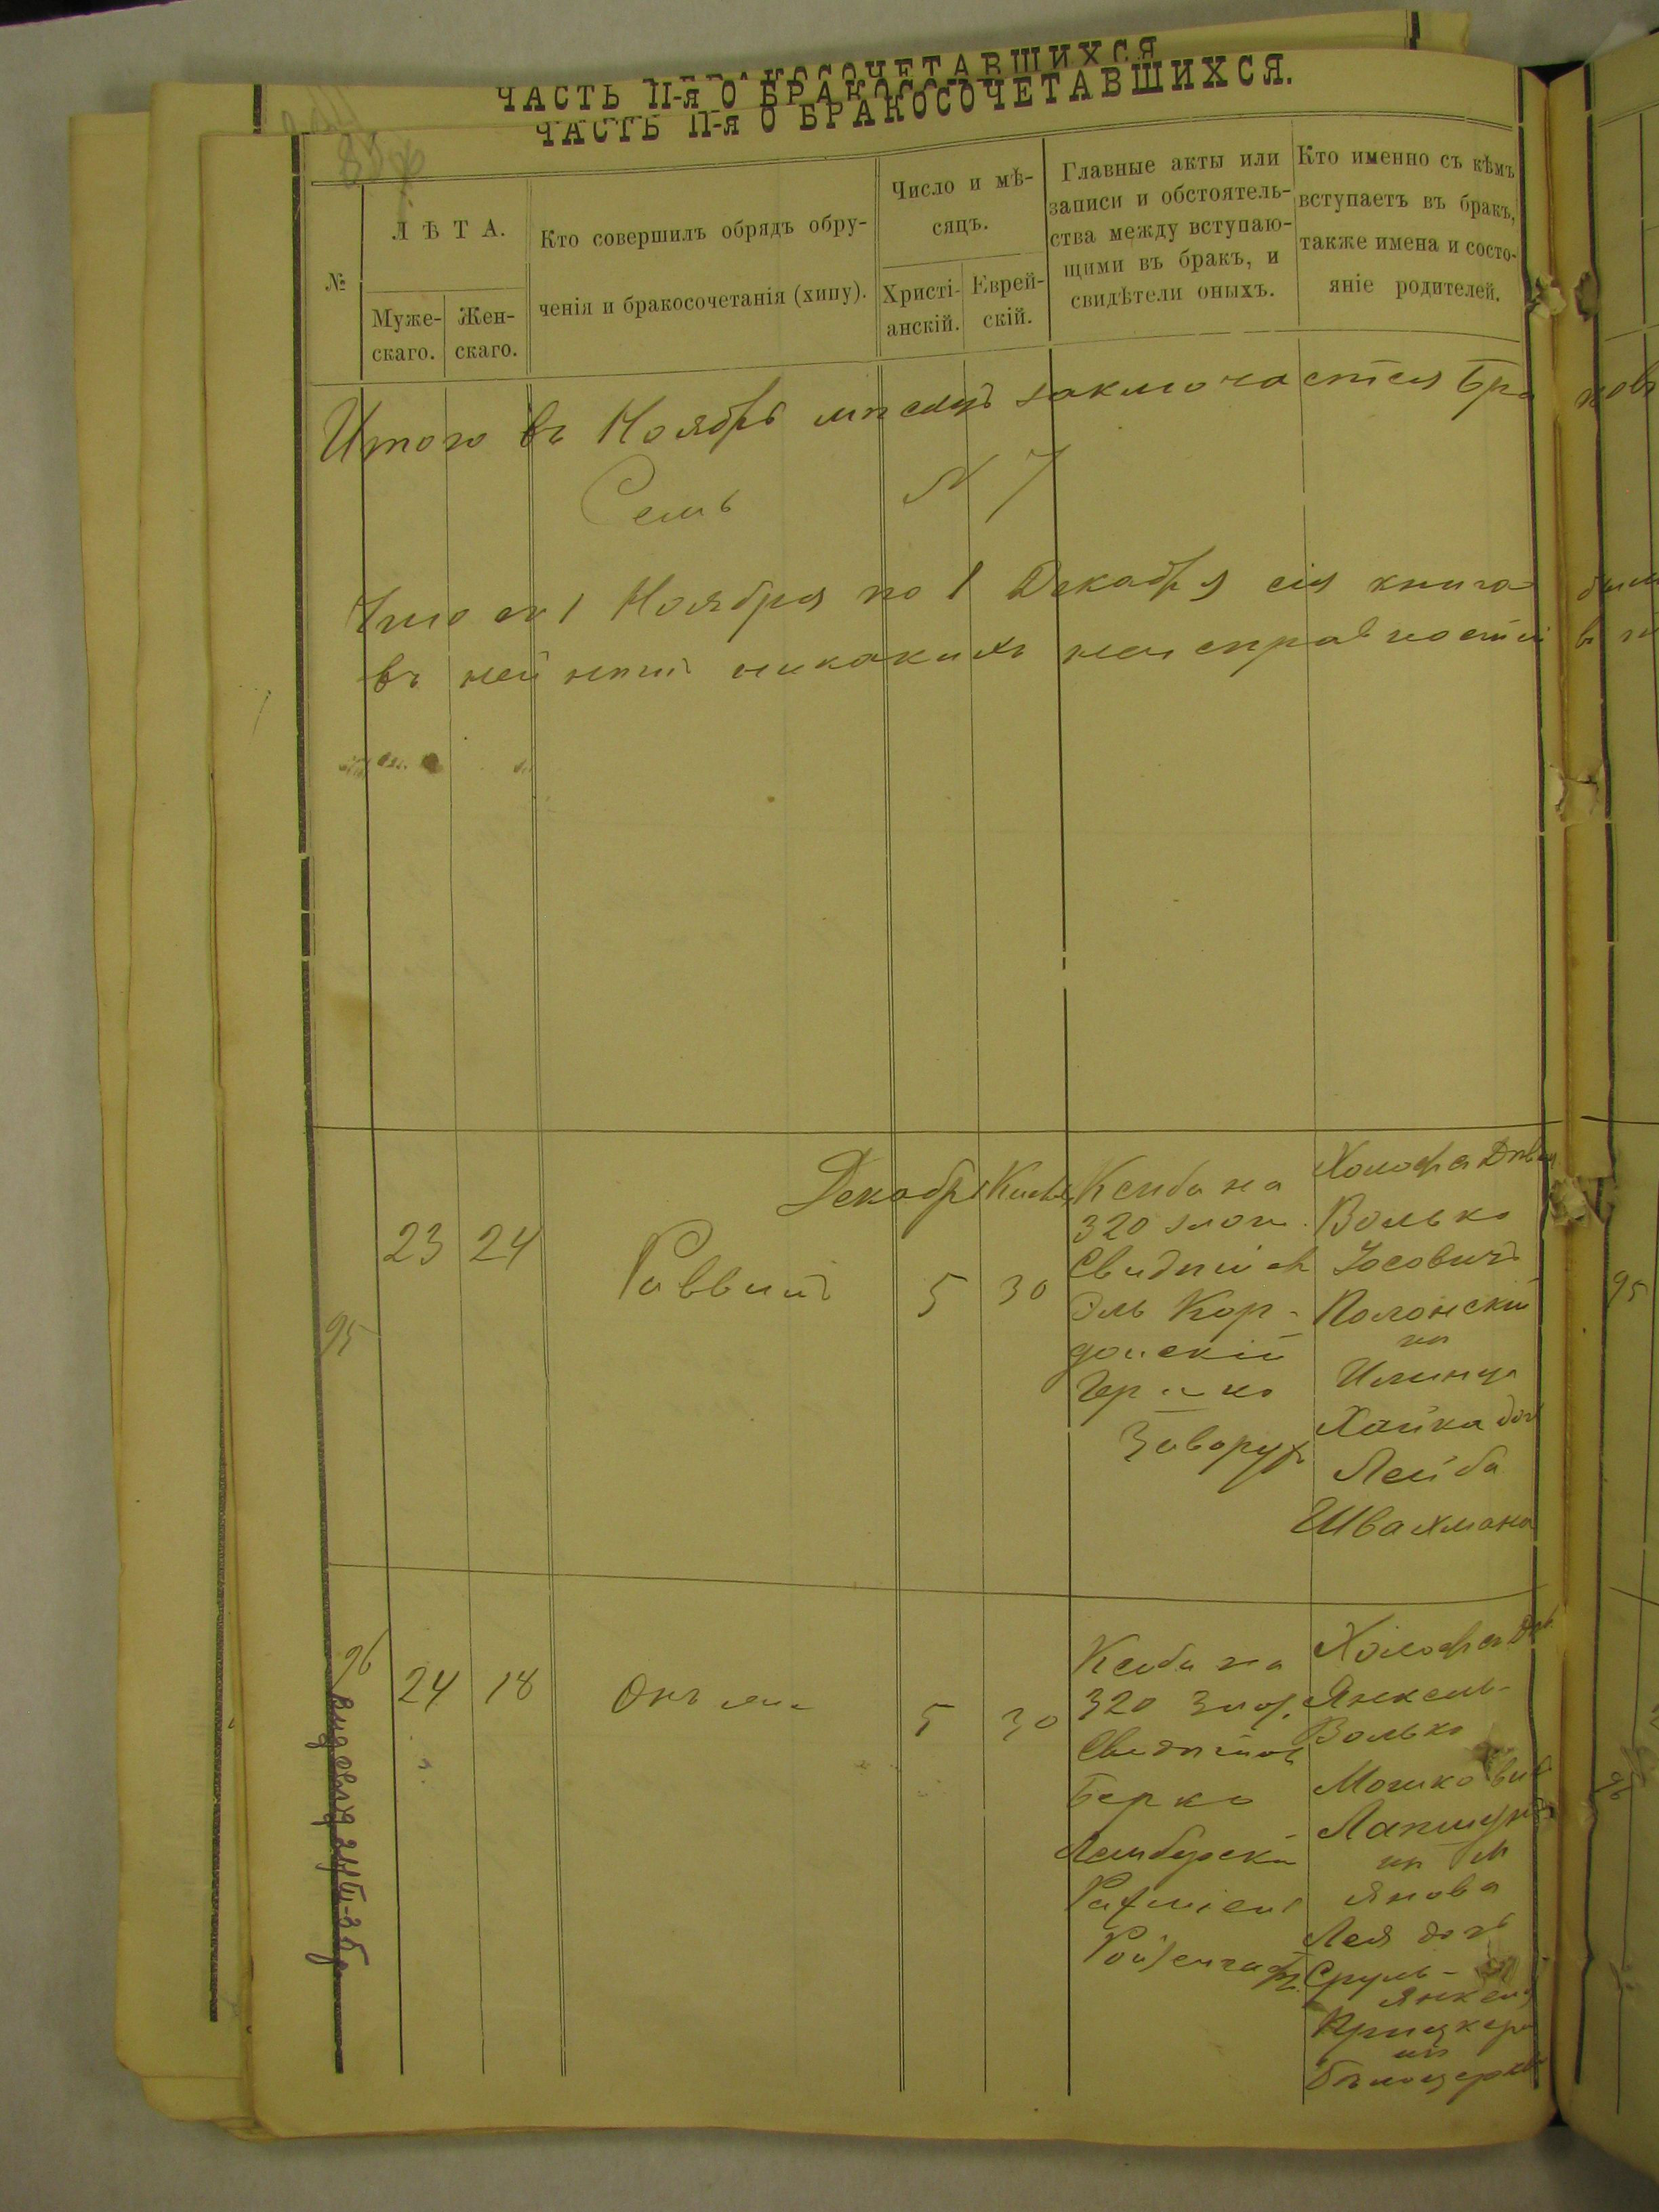 ЧАСТЬ II-я О БРАКОСОЧЕТАВШИХСЯ
ЧАСТЬ II-я О БРАКОСОЧЕТАВШИХСЯ.
№
ЛѢТА.
Муже-
скаго.
Жен-
скаго.
Кто совершилъ обрядъ обру-
ченія и бракосочетанія (хипу).
Число и мѣ-
сяцъ.
Христі-
анскій.
Еврей-
скій.
Главные акты или
записи и обстоятель-
ства между вступаю-
щими въ бракъ, и
свидѣтели оныхъ.
Кто именно съ кѣмъ
вступаетъ въ бракъ,
также имена и состо-
яніе родителей.
Итого въ Ноябрѣ мѣсяцѣ заключается бра ковъ
Семь N 7
Что съ 1 Ноября по 1 Декабря сія книга
въ ней нѣтъ никакихъ неисправностей
95
23 24
Раввинъ
Декабрь
5 30
Ксиба на
320 злот.
Свидѣтели
Эль Кор-
донскій
Гершко
Заворух
Холостъ
Волько
Іосовичъ
Полонскій
изъ
Илинца
Хайка дочь
Лейба
Швахмана
95
96
24 18
Онъ же
5 30
Ксиба на
320 злот.
Свидѣтели
Берко
Лембурскій
Рахміель
Ройзенгафт
Холостъ
Янкель-
Волько
Мошковичъ
Лапшунъ
изъ М
Янова
Лея дочь
Сруль-
Янкеля
Крицкера
изъ
Бѣлоцеркви
96